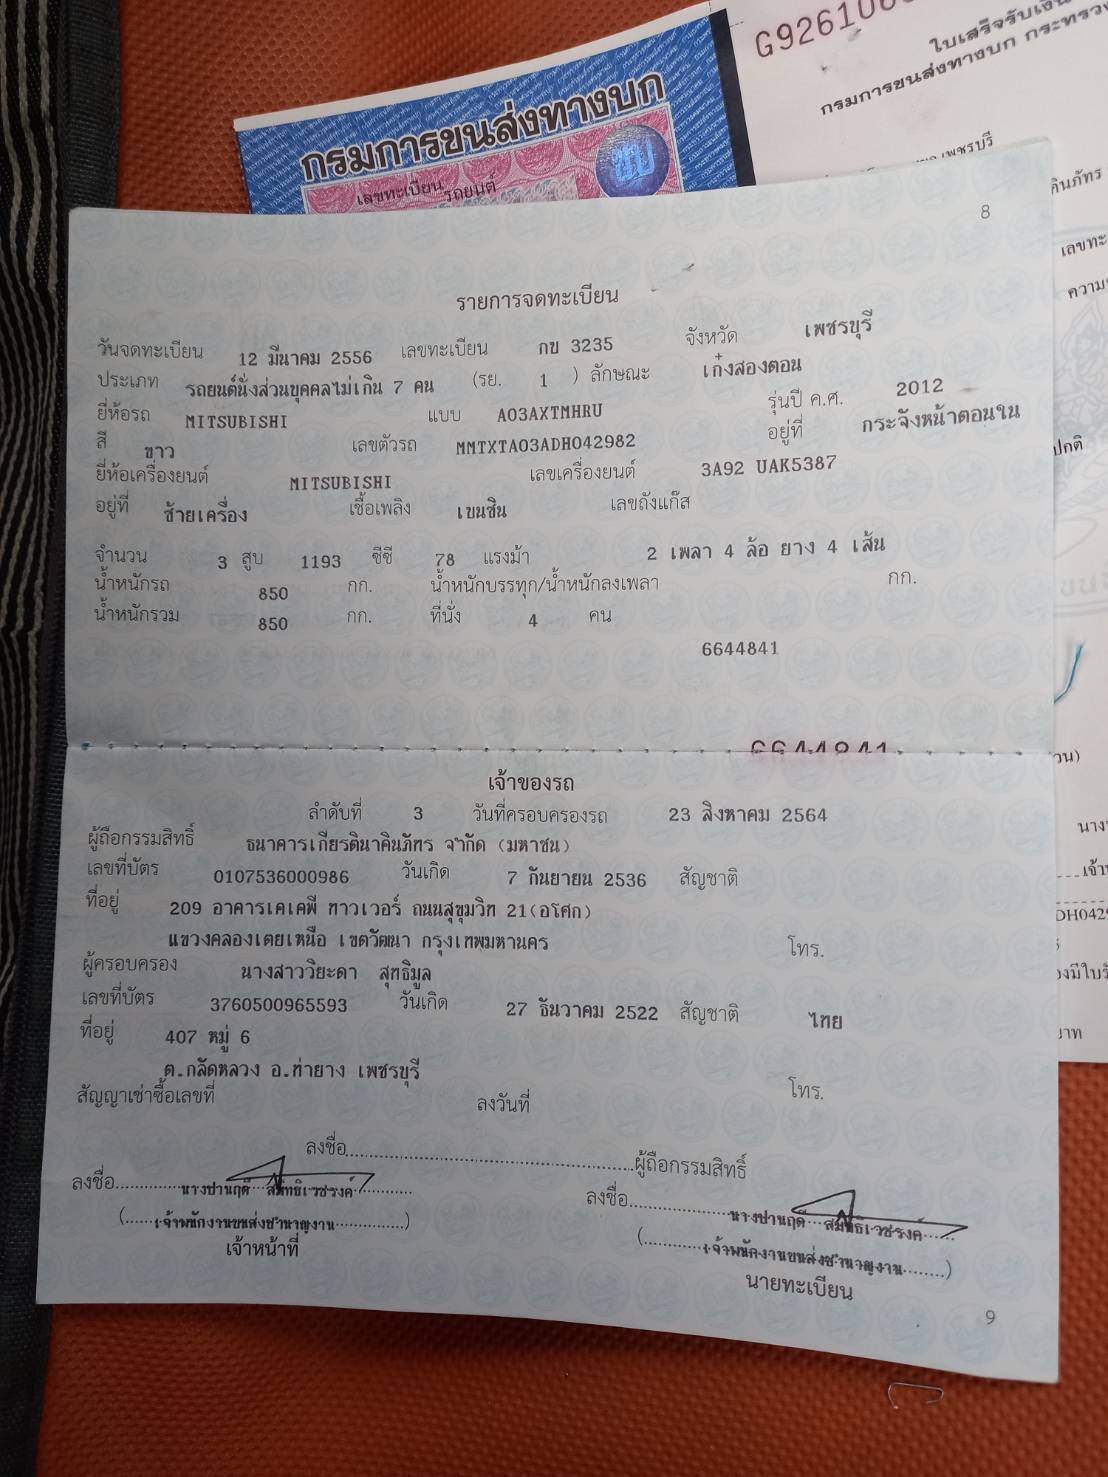 G92610
ใบเสร็จรับเงิน
กรมการขนส่งทางบก กระทรวง
กรมการขนส่งทางบก
ขบ
เลขทะเบียน รถยนต์
เพชรบุรี
คินภัทร
เลขทะ
8
รายการจดทะเบียน
วันจดทะเบียน 12 มีนาคม 2556 เลขทะเบียน กข 3235 จังหวัด เพชรบุรี
ประเภท รถยนต์นั่งส่วนบุคคลไม่เกิน 7 คน (รย. 1 ) ลักษณะ เก๋งสองตอน
ยี่ห้อรถ MITSUBISHI แบบ A03AXTMHRU รุ่นปี ค.ศ. 2012
สี ขาว เลขตัวรถ MMTXTA03ADH042982 อยู่ที่ กระจังหน้าตอนใน
ยี่ห้อเครื่องยนต์ MITSUBISHI เลขเครื่องยนต์ 3A92 UAK5387
อยู่ที่ ซ้ายเครื่อง เชื้อเพลิง เบนซิน เลขถังแก๊ส
จำนวน 3 สูบ 1193 ซีซี 78 แรงม้า 2 เพลา 4 ล้อ ยาง 4 เส้น
น้ำหนักรถ 850 กก. น้ำหนักบรรทุก/น้ำหนักลงเพลา กก.
น้ำหนักรวม 850 กก. ที่นั่ง 4 คน
6644841
6644841
เจ้าของรถ
ลำดับที่ 3 วันที่ครอบครองรถ 23 สิงหาคม 2564
ผู้ถือกรรมสิทธิ์ ธนาคารเกียรตินาคินภัทร จำกัด (มหาชน)
เลขที่บัตร 0107536000986 วันเกิด 7 กันยายน 2536 สัญชาติ
ที่อยู่ 209 อาคารเคเคพี ทาวเวอร์ ถนนสุขุมวิท 21(อโศก)
แขวงคลองเตยเหนือ เขตวัฒนา กรุงเทพมหานคร โทร.
ผู้ครอบครอง นางสาววิยะดา สุทธิมูล
เลขที่บัตร 3760500965593 วันเกิด 27 ธันวาคม 2522 สัญชาติ ไทย
ที่อยู่ 407 หมู่ 6
ต.กลัดหลวง อ.ท่ายาง เพชรบุรี
สัญญาเช่าซื้อเลขที่ ลงวันที่ โทร.
ลงชื่อ ผู้ถือกรรมสิทธิ์
ลงชื่อ นางปานฤดี
(เจ้าพนักงานขนส่งชำนาญงาน)
เจ้าหน้าที่
ลงชื่อ นางปานฤดี
(เจ้าพนักงานขนส่งชำนาญงาน)
นายทะเบียน
9